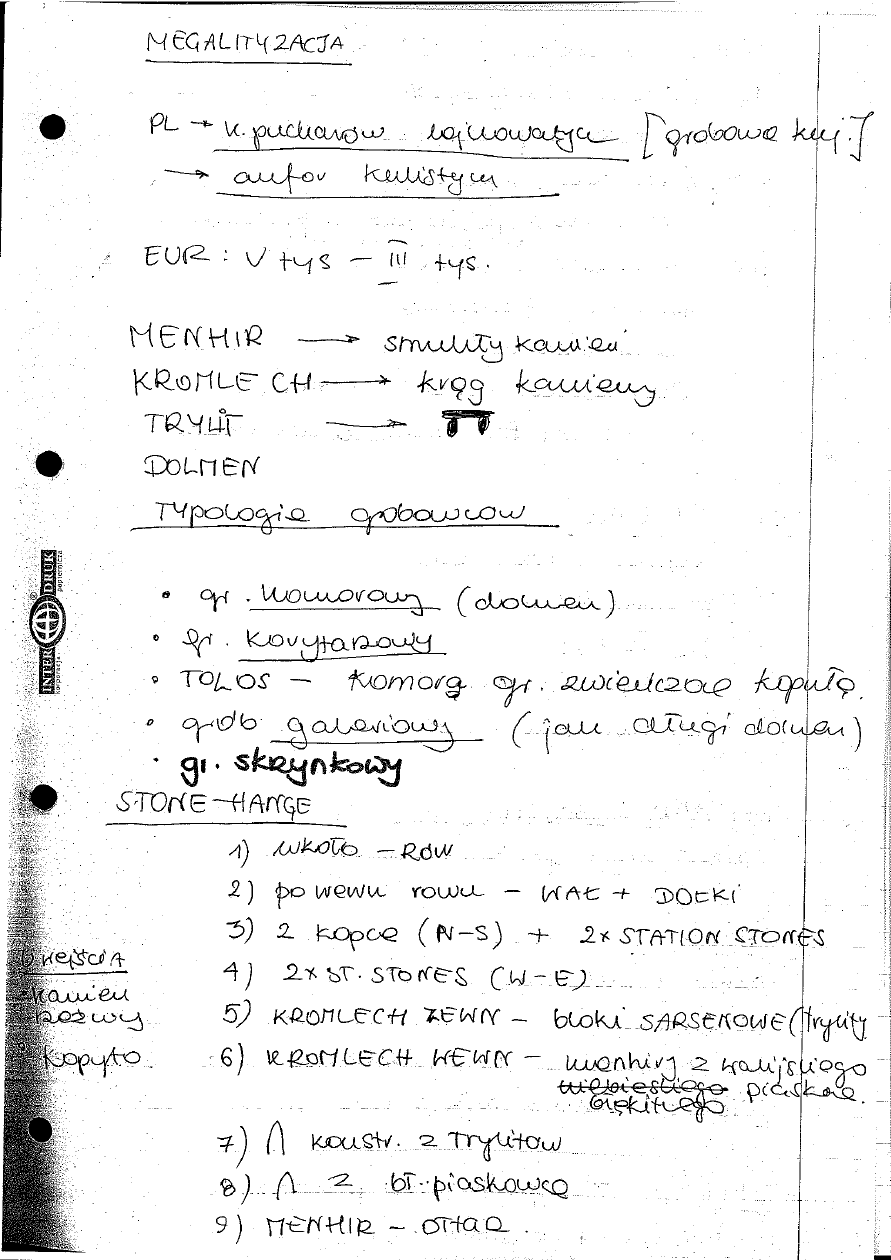 MEGALITYZACJA
PL → k. pucharów lejkowatych [grobowce kuj.]
→ amfor kulistych
EUR : V tys – III tys.
MENHIR → smukły kamień
KROMLECH → krąg kamienny
TRYLIT →
DOLMEN
Typologie grobowców
• gr. komorowy (dolmen)
• gr. korytarzowy
• TOLOS – komorą gr. zwieńczoe kopułą.
• grób galeriowy (jak długi dolmen)
• gr. skrzynkowy
STONE-HANGE
1) wkoło – RÓW
2) po wewn rowu – WAŁ + DOŁKI
3) 2 kopce (N-S) + 2x STATION STONES
4) 2x ST. STONES (W-E)
5) KROMLECH ZEWN – bloki SARSENOWE (trylity
6) KROMLECH WEWN – menhiry z walijskiego
niebieskiego piaskow.
błękitnego
7) ⋂ konstr. z Trylitów
8) ⋂ z bł. piaskowca
9) MENHIR – OŁTARZ.
WEJŚCIA
kamień
Kopyto
INTER DRUK
korporacja papiernicza